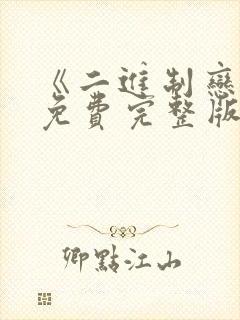 《二進制戀
免費完整版
卿點江山